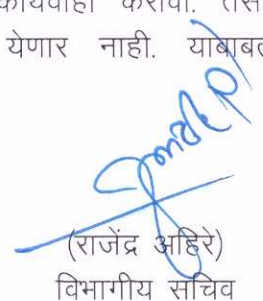 कार्यवाही करावी.
येणार नाही. याबाबत
(राजेंद्र अहिरे)
विभागीय सचिव